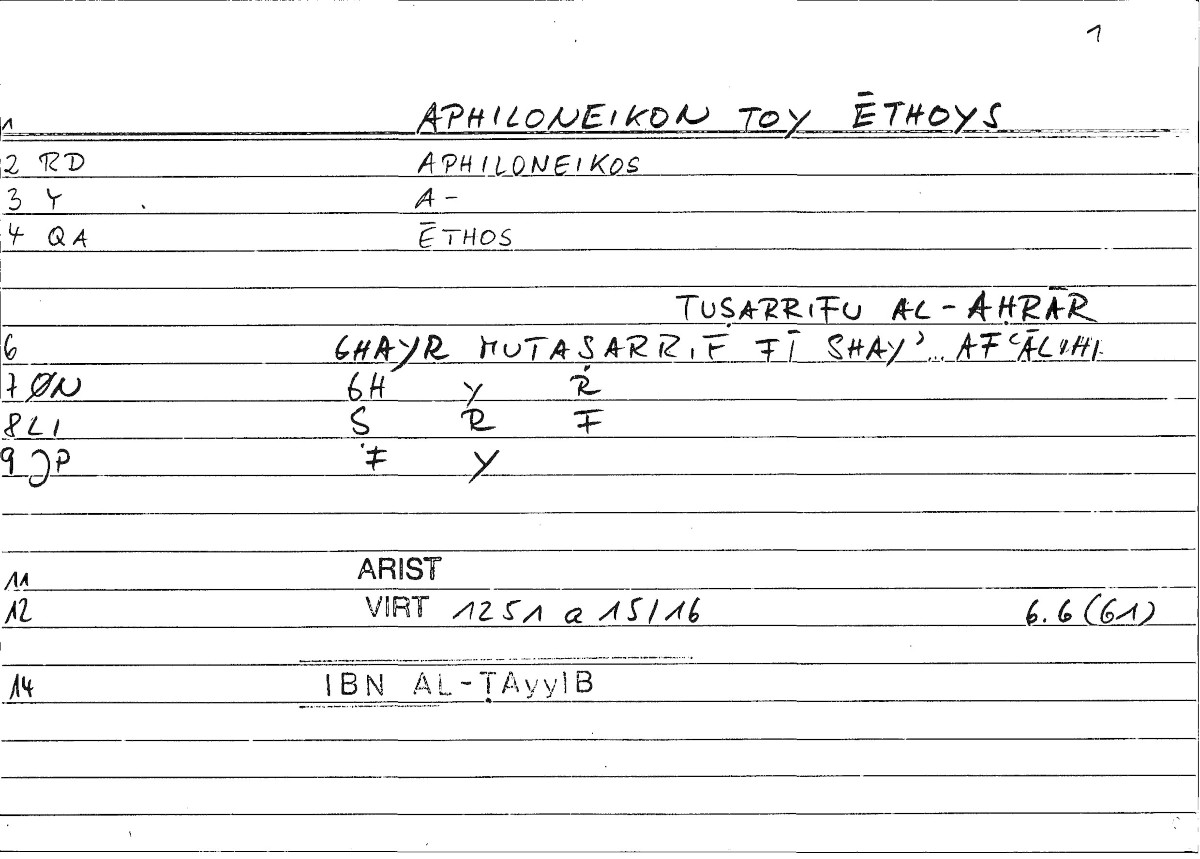 1
1 APHILONEIKON TOY ĒTHOYS
2 RD APHILONEIKOS
3 Y A-
4 QA ĒTHOS
TUṢARRIFU AL-AḤRĀR
6 GHAYR MUTAṢARRIF FĪ SHAY' .. AF'ĀLIHI
7 ØN GH Y R
8 LI Ṣ R F
9 JP F Y
11 ARIST
12 VIRT 1251 a 15/16 6.6 (61)
14 IBN AL-ṬAyyIB